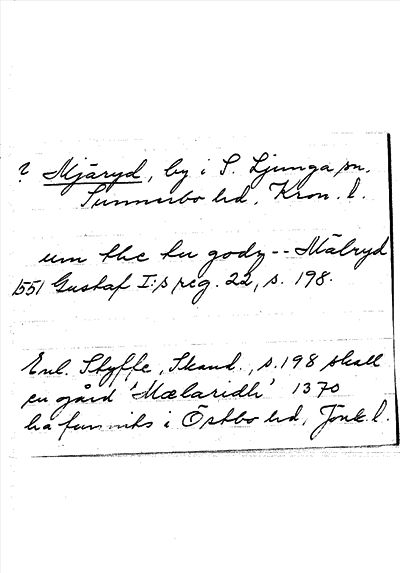 ? Mjäryd, by i S. Ljunga sn.
Sunnerbo hd, Kron. l.
um the tu godz -- Mälryd
1551 Gustaf I:s reg. 22, s. 198.
Enl. Styffe, Skand., s. 198 skall
en gård 'Mælaridh' 1370
ha funnits i Östbo hd, Jönk. l.